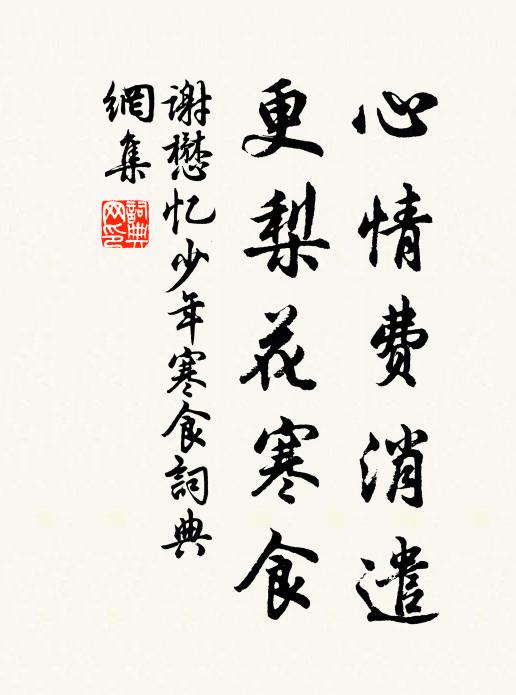 心情費消遣
更梨花寒食
谢懋忆少年寒食詞典
網集
詞典
网印